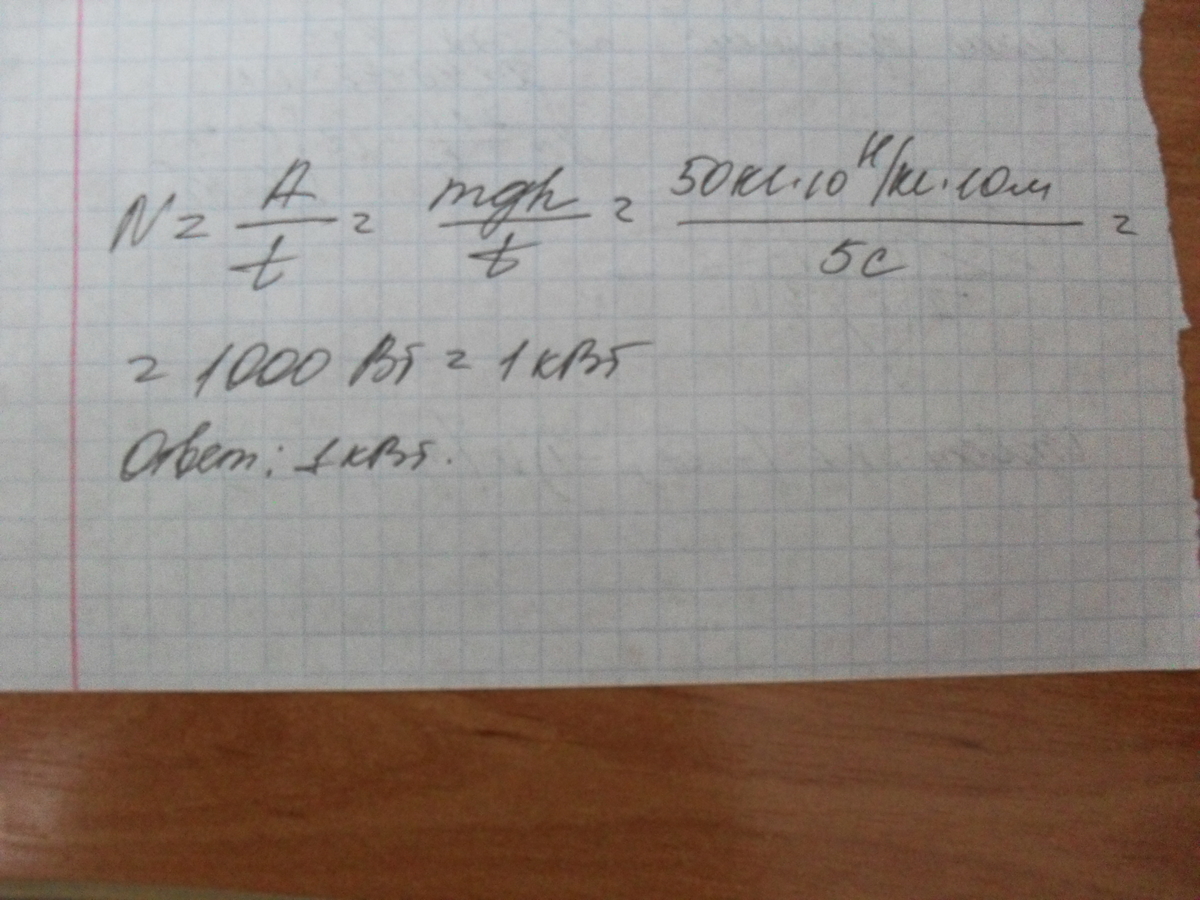 N = A/t = mgh/t = 50кг·10 Н/кг·10м / 5с =
= 1000 Вт = 1 кВт
Ответ: 1 кВт.